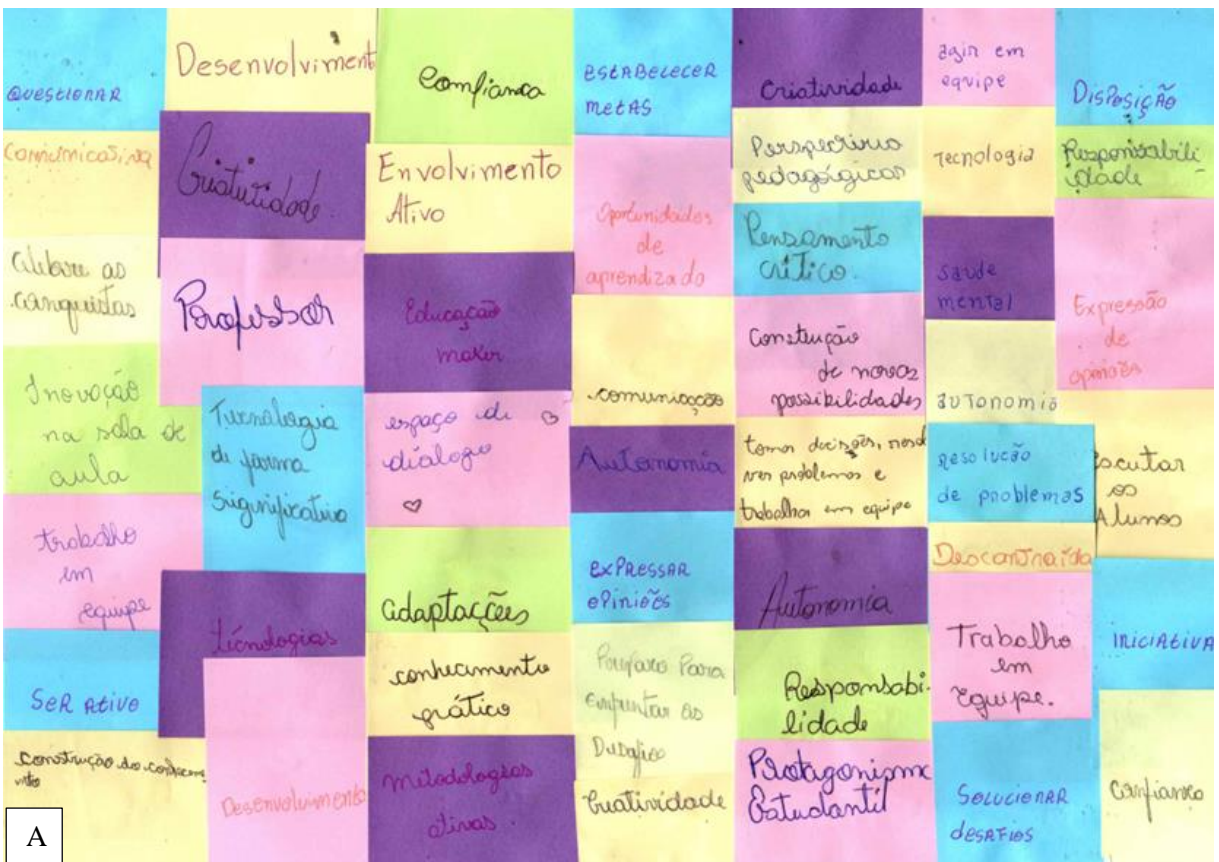 QUESTIONAR
Comunicativa
Celebre as
conquistas
Inovação
na sala de
aula
trabalho
em
equipe
SER Ativo
construção do conhecimento
Desenvolviment
Criatividade.
Professor
Tecnologia
de forma
significativa
tecnologias
Desenvolvimento
Confiança
Envolvimento
Ativo
Educação
maker
espaço de
diálogo
adaptações
conhecimento
prático
metodologias
ativas.
EStABELECER
metAS
Oportunidades
de
aprendizado
comunicação
Autonomia
EXPRESSAR
OPiniões
Preparo Para
Enfrentar os
Desafios
Criatividade
Criatividade
Perspectivas
pedagógicas
Pensamento
crítico.
Construção
de novas
possibilidades
tomar decisões, resol
ver problemas e
trabalhar em equipe
Autonomia
Responsabi-
lidade
Protagonismo
Estudantil
agir em
equipe
tecnologia
saúde
mental
autonomia
Resolução
de problemas
Descontraída
Trabalho
em
Equipe.
Solucionar
desafios
Disposição
Responsabili-
dade
Expressão
de
opiniões
Escutar
os
Alunos
INICIAtIVA
Confiança
A